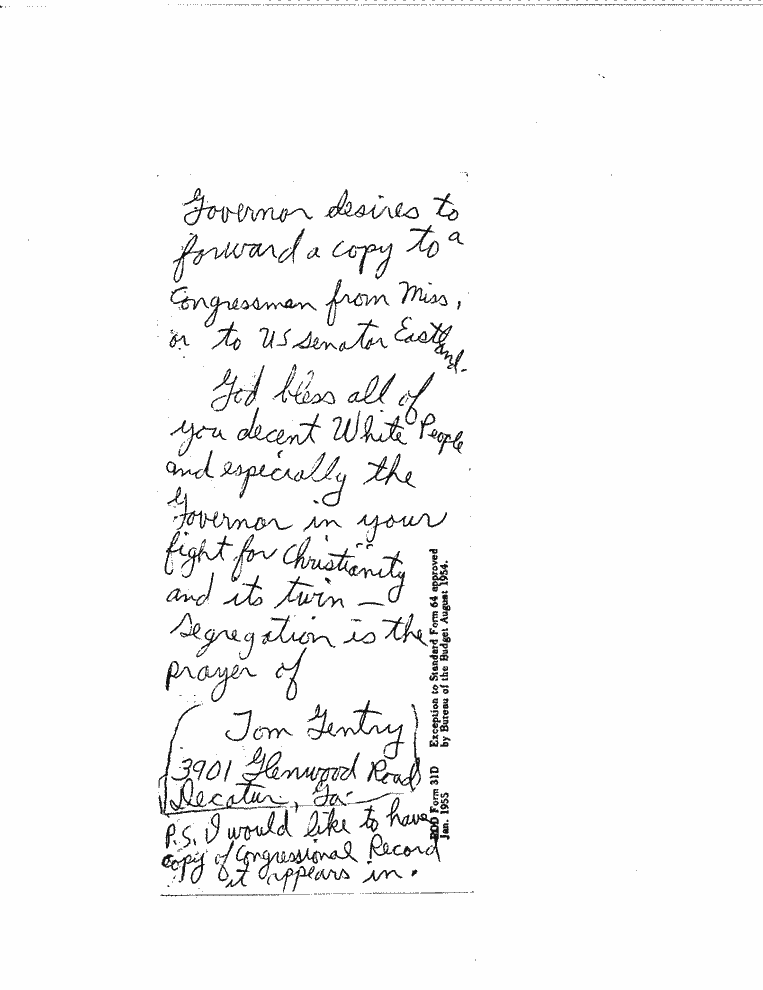 Governor desires to
forward a copy to a
Congressman from Miss,
or to US Senator Eastland.
God bless all of
you decent White People
and especially the
Governor in your
fight for Christianity
and its twin —
Segregation is the
prayer of
Tom Gentry
3901 Glenwood Road
Decatur, Ga.
P.S. I would like to have
copy of Congressional Record
it appears in.
DOD Form 31D Exception to Standard Form 64 approved
Jan. 1955 by Bureau of the Budget August 1954.